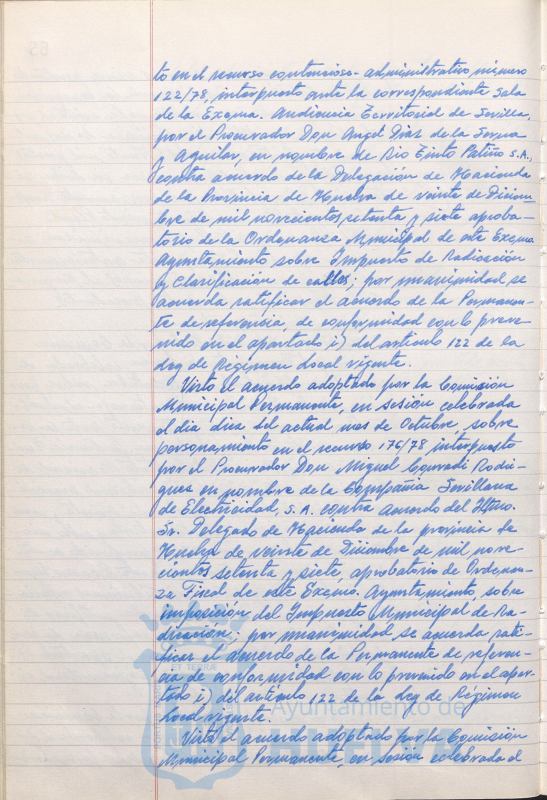 to en el recurso contencioso-administrativo número
122/78, interpuesto ante la correspondiente Sala
de la Excma. Audiencia Territorial de Sevilla,
por el Procurador Don Angel Diaz de la Serna
y Aguilar, en nombre de Rio Tinto Patiño S.A.,
contra acuerdo de la Delegación de Hacienda
de la Provincia de Huelva de veinte de Diciem
bre de mil novecientos setenta y siete aproba-
torio de la Ordenanza Municipal de este Excmo
Ayuntamiento sobre Impuesto de Radicación
y Clasificación de calles; por unanimidad se
acuerda ratificar el acuerdo de la Permanen-
te de referencia, de conformidad con lo preve-
nido en el apartado i) del articulo 122 de la
Ley de Régimen Local vigente.
Visto el acuerdo adoptado por la Comisión
Municipal Permanente, en sesión celebrada
el dia diez del actual mes de Octubre, sobre
personamiento en el recurso 176/78 interpuesto
por el Procurador Don Miguel Conradi Rodri-
guez en nombre de la Compañia Sevillana
de Electricidad, S.A. contra acuerdo del Iltmo.
Sr. Delegado de Hacienda de la provincia de
Huelva de veinte de Diciembre de mil nove-
cientos setenta y siete, aprobatorio de Ordenan-
za Fiscal de este Excmo. Ayuntamiento, sobre
imposición del Impuesto Municipal de Ra-
dicación; por unanimidad se acuerda rati-
ficar el acuerdo de la Permanente de referen-
cia de conformidad con lo prevenido en el apar-
tado i) del articulo 122 de la Ley de Régimen
Local vigente.
Visto el acuerdo adoptado por la Comisión
Municipal Permanente, en sesión celebrada el
Ayuntamiento de
HUELVA